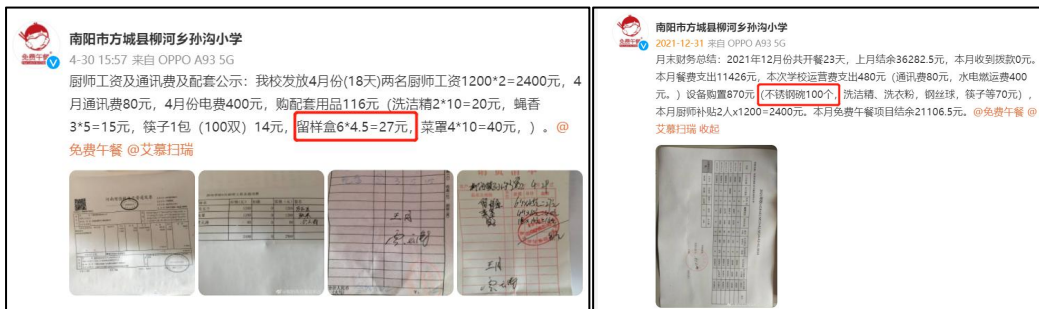 南阳市方城县柳河乡孙沟小学
4-30 15:57 来自 OPPO A93 5G
厨师工资及通讯费及配套公示：我校发放4月份(18天)两名厨师工资1200*2=2400元，4
月通讯费80元，4月份电费400元，购配套用品116元（洗洁精2*10=20元，蝇香
3*5=15元，筷子1包（100双）14元，留样盒6*4.5=27元，菜罩4*10=40元，）。@
免费午餐 @艾慕扫瑞
免费午餐
南阳市方城县柳河乡孙沟小学
2021-12-31 来自 OPPO A93 5G
月末财务总结：2021年12月份共开餐23天，上月结余36282.5元，本月收到拨款0元。
本月餐费支出11426元，本次学校运营费支出480元（通讯费80元，水电燃运费400
元。）设备购置870元（不锈钢碗100个，洗洁精、洗衣粉，钢丝球，筷子等70元），
本月厨师补贴2人x1200=2400元。本月免费午餐项目结余21106.5元。@免费午餐 @
艾慕扫瑞 收起